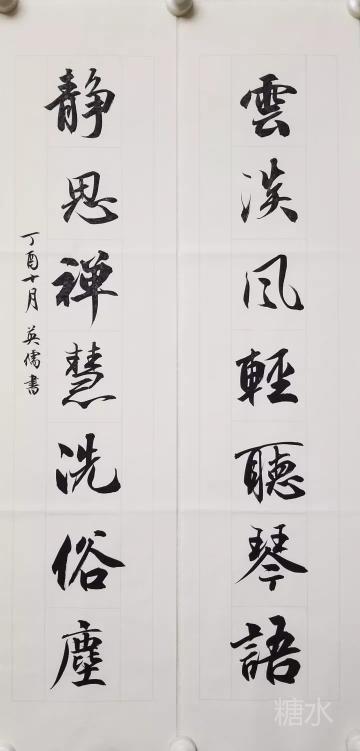 雲淡風輕聽琴語
静思禅慧洗俗塵
丁酉十月 英儒書
糖水